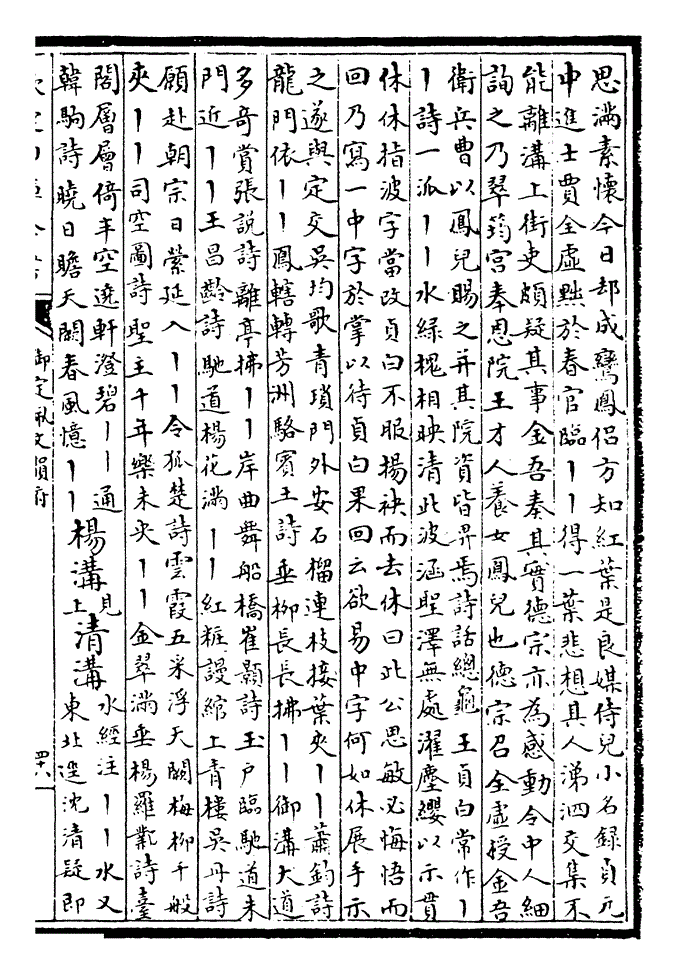 思滿素懷今日却成鸞鳳侣方知紅葉是良媒侍兒小名録貞元
中進士賈全虛黜於春官臨丨丨得一葉悲想其人涕泗交集不
能離溝上街吏頗疑其事金吾奏其實德宗亦為感動令中人細
詢之乃翠筠宫奉恩院王才人養女鳳兒也德宗召全虛授金吾
衛兵曹以鳳兒賜之并其院資皆畀焉詩話總龜王貞白常作丨
丨詩一派丨丨水緑槐相映清此波涵聖澤無處濯塵纓以示貫
休休指波字當改貞白不服揚袂而去休曰此公思敏必悔悟而
回乃寫一中字於掌以待貞白果回云欲易中字何如休展手示
之遂與定交吳均歌青瑣門外安石榴連枝接葉夾丨丨蕭鈞詩
龍門依丨丨鳳轄轉芳洲駱賓王詩垂柳長長拂丨丨御溝大道
多奇賞張説詩離亭拂丨丨岸曲舞船橋崔顥詩玉户臨馳道朱
門近丨丨王昌齡詩馳道楊花滿丨丨紅粧謾綰上青樓吳丹詩
願赴朝宗日縈延入丨丨令狐楚詩雲霞五采浮天闕梅柳千般
夾丨丨司空圖詩聖主千年樂未央丨丨金翠滿垂楊羅鄴詩臺
閣層層倚半空遶軒澄碧丨丨通
韓駒詩曉日瞻天闕春風憶丨丨
楊溝
見上
清溝
水經注丨丨水又
東北逕沈清疑即
欽定四庫全書
御定佩文韻府
四六